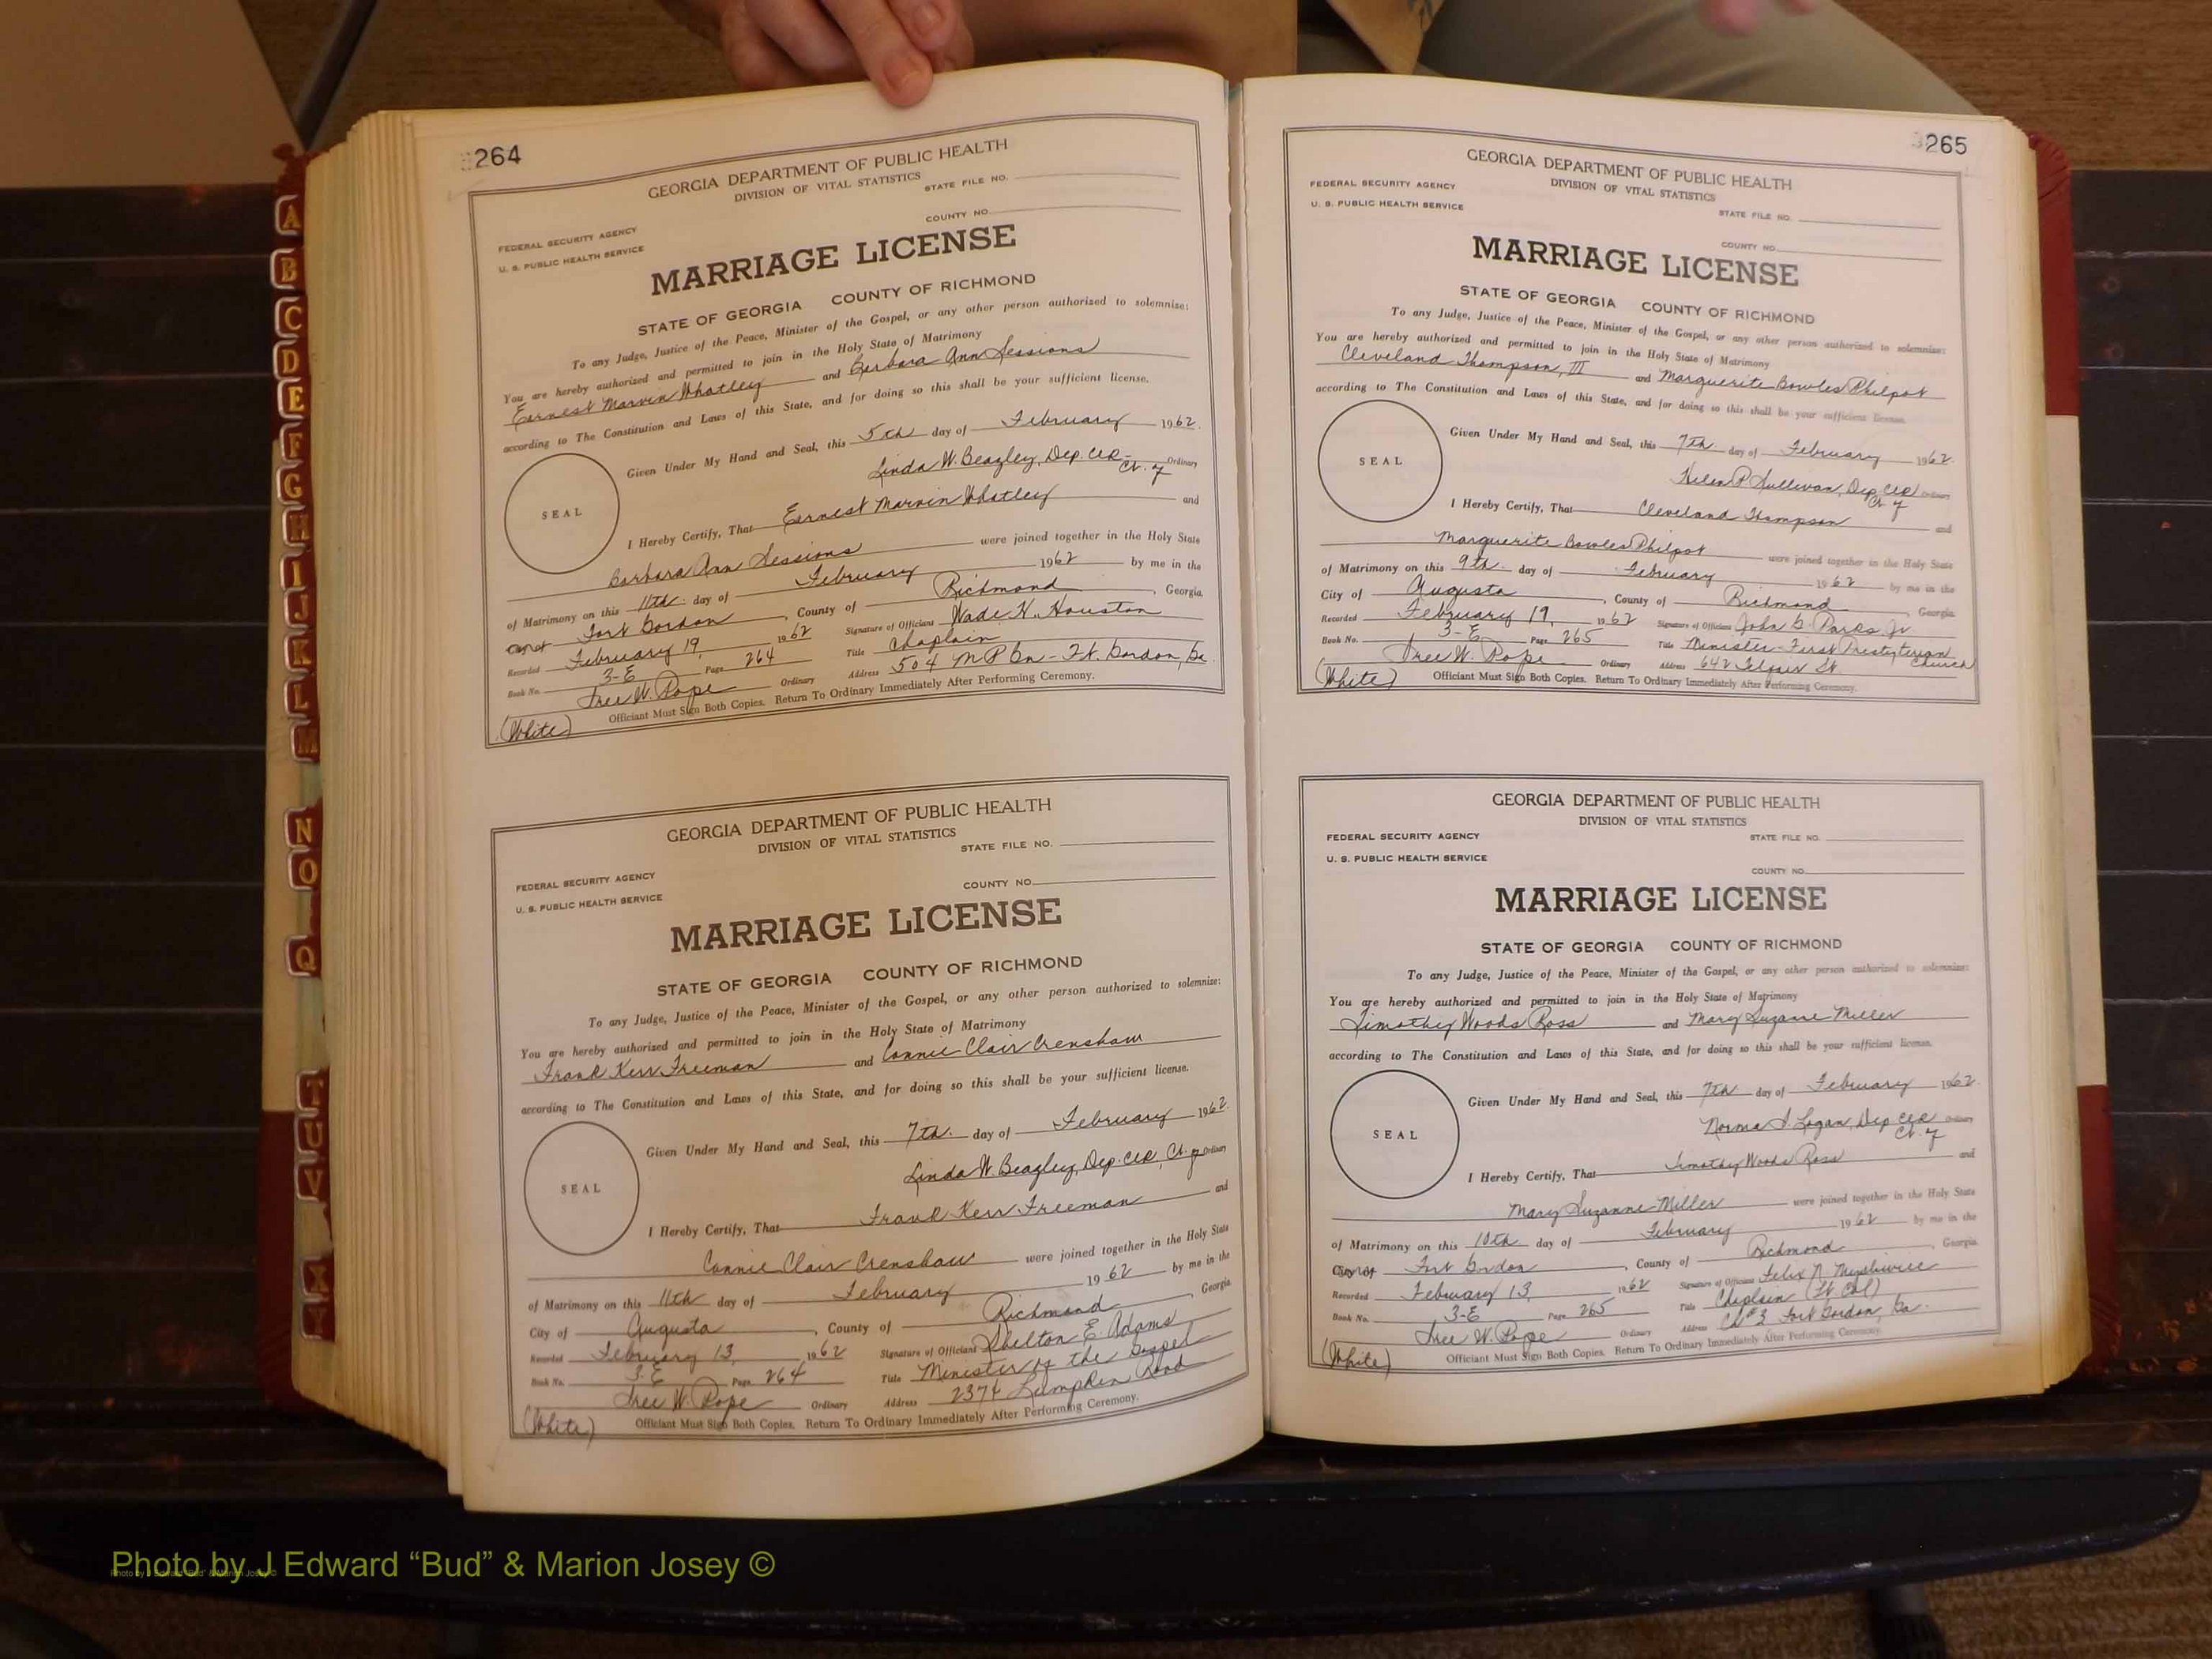 264
GEORGIA DEPARTMENT OF PUBLIC HEALTH
DIVISION OF VITAL STATISTICS
STATE FILE NO.
COUNTY NO.
FEDERAL SECURITY AGENCY
U. S. PUBLIC HEALTH SERVICE
MARRIAGE LICENSE
STATE OF GEORGIA COUNTY OF RICHMOND
To any Judge, Justice of the Peace, Minister of the Gospel, or any other person authorized to solemnize:
You are hereby authorized and permitted to join in the Holy State of Matrimony
Earnest Marvin Whatley and Barbara Ann Sessions
according to The Constitution and Laws of this State, and for doing so this shall be your sufficient license.
Given Under My Hand and Seal, this 5th day of February 1962.
Linda W. Beazley, Dep. Clk. Ct. of Ordinary
SEAL
I Hereby Certify, That Earnest Marvin Whatley and
Barbara Ann Sessions were joined together in the Holy State
of Matrimony on this 11th. day of February 1962 by me in the
Fort Gordon, County of Richmond, Georgia.
Recorded February 19, 1962 Signature of Officiant Wade H. Houston
Book No. 3-E Page 264 Title Chaplain
Tree W. Pope Ordinary Address 504 MP Bn - Ft. Gordon, Ga.
(White) Officiant Must Sign Both Copies. Return To Ordinary Immediately After Performing Ceremony.
GEORGIA DEPARTMENT OF PUBLIC HEALTH
DIVISION OF VITAL STATISTICS
STATE FILE NO.
COUNTY NO.
FEDERAL SECURITY AGENCY
U. S. PUBLIC HEALTH SERVICE
MARRIAGE LICENSE
STATE OF GEORGIA COUNTY OF RICHMOND
To any Judge, Justice of the Peace, Minister of the Gospel, or any other person authorized to solemnize:
You are hereby authorized and permitted to join in the Holy State of Matrimony
Frank Kerr Freeman and Connie Clair Crenshaw
according to The Constitution and Laws of this State, and for doing so this shall be your sufficient license.
Given Under My Hand and Seal, this 7th. day of February 1962.
Linda W. Beazley, Dep. Clk. Ct. of Ordinary
SEAL
I Hereby Certify, That Frank Kerr Freeman and
Connie Clair Crenshaw were joined together in the Holy State
of Matrimony on this 11th day of February 1962 by me in the
City of Augusta, County of Richmond, Georgia.
Recorded February 13, 1962 Signature of Officiant Shelton E. Adams
Book No. 3-E Page 264 Title Minister of the Gospel
Tree W. Pope Ordinary Address 2374 Lumpkin Road
(White) Officiant Must Sign Both Copies. Return To Ordinary Immediately After Performing Ceremony.
265
GEORGIA DEPARTMENT OF PUBLIC HEALTH
DIVISION OF VITAL STATISTICS
FEDERAL SECURITY AGENCY
U. S. PUBLIC HEALTH SERVICE
STATE FILE NO.
COUNTY NO.
MARRIAGE LICENSE
STATE OF GEORGIA COUNTY OF RICHMOND
To any Judge, Justice of the Peace, Minister of the Gospel, or any other person authorized to solemnize:
You are hereby authorized and permitted to join in the Holy State of Matrimony
Cleveland Thompson, III and Marguerite Bowles Philpot
according to The Constitution and Laws of this State, and for doing so this shall be your sufficient license.
Given Under My Hand and Seal, this 7th. day of February 1962.
Helen P. Sullivan, Dep. Clk. Ct. of Ordinary
SEAL
I Hereby Certify, That Cleveland Thompson and
Marguerite Bowles Philpot were joined together in the Holy State
of Matrimony on this 9th. day of February 1962 by me in the
City of Augusta, County of Richmond, Georgia.
Recorded February 19, 1962 Signature of Officiant John G. Parks Jr
Book No. 3-E Page 265 Title Minister - First Presbyterian Church
Tree W. Pope Ordinary Address 642 Telfair St
(White) Officiant Must Sign Both Copies. Return To Ordinary Immediately After Performing Ceremony.
GEORGIA DEPARTMENT OF PUBLIC HEALTH
DIVISION OF VITAL STATISTICS
FEDERAL SECURITY AGENCY
STATE FILE NO.
U. S. PUBLIC HEALTH SERVICE
COUNTY NO.
MARRIAGE LICENSE
STATE OF GEORGIA COUNTY OF RICHMOND
To any Judge, Justice of the Peace, Minister of the Gospel, or any other person authorized to solemnize:
You are hereby authorized and permitted to join in the Holy State of Matrimony
Timothy Woods Ross and Mary Suzanne Miller
according to The Constitution and Laws of this State, and for doing so this shall be your sufficient license.
Given Under My Hand and Seal, this 7th day of February 1962.
Norma J. Logan, Dep Clk Ct. of Ordinary
SEAL
I Hereby Certify, That Timothy Woods Ross and
Mary Suzanne Miller were joined together in the Holy State
of Matrimony on this 10th day of February 1962 by me in the
City of Fort Gordon, County of Richmond, Georgia.
Recorded February 13, 1962 Signature of Officiant Felix N.
Book No. 3-E Page 265 Title Chaplain (Lt Col)
Tree W. Pope Ordinary Address Ch #3 Fort Gordon, Ga.
(White) Officiant Must Sign Both Copies. Return To Ordinary Immediately After Performing Ceremony.
A
B
C
D
E
F
G
H
I
J
K
L
M
N
O
Q
T
U
V
X
Y
Photo by J Edward “Bud” & Marion Josey ©